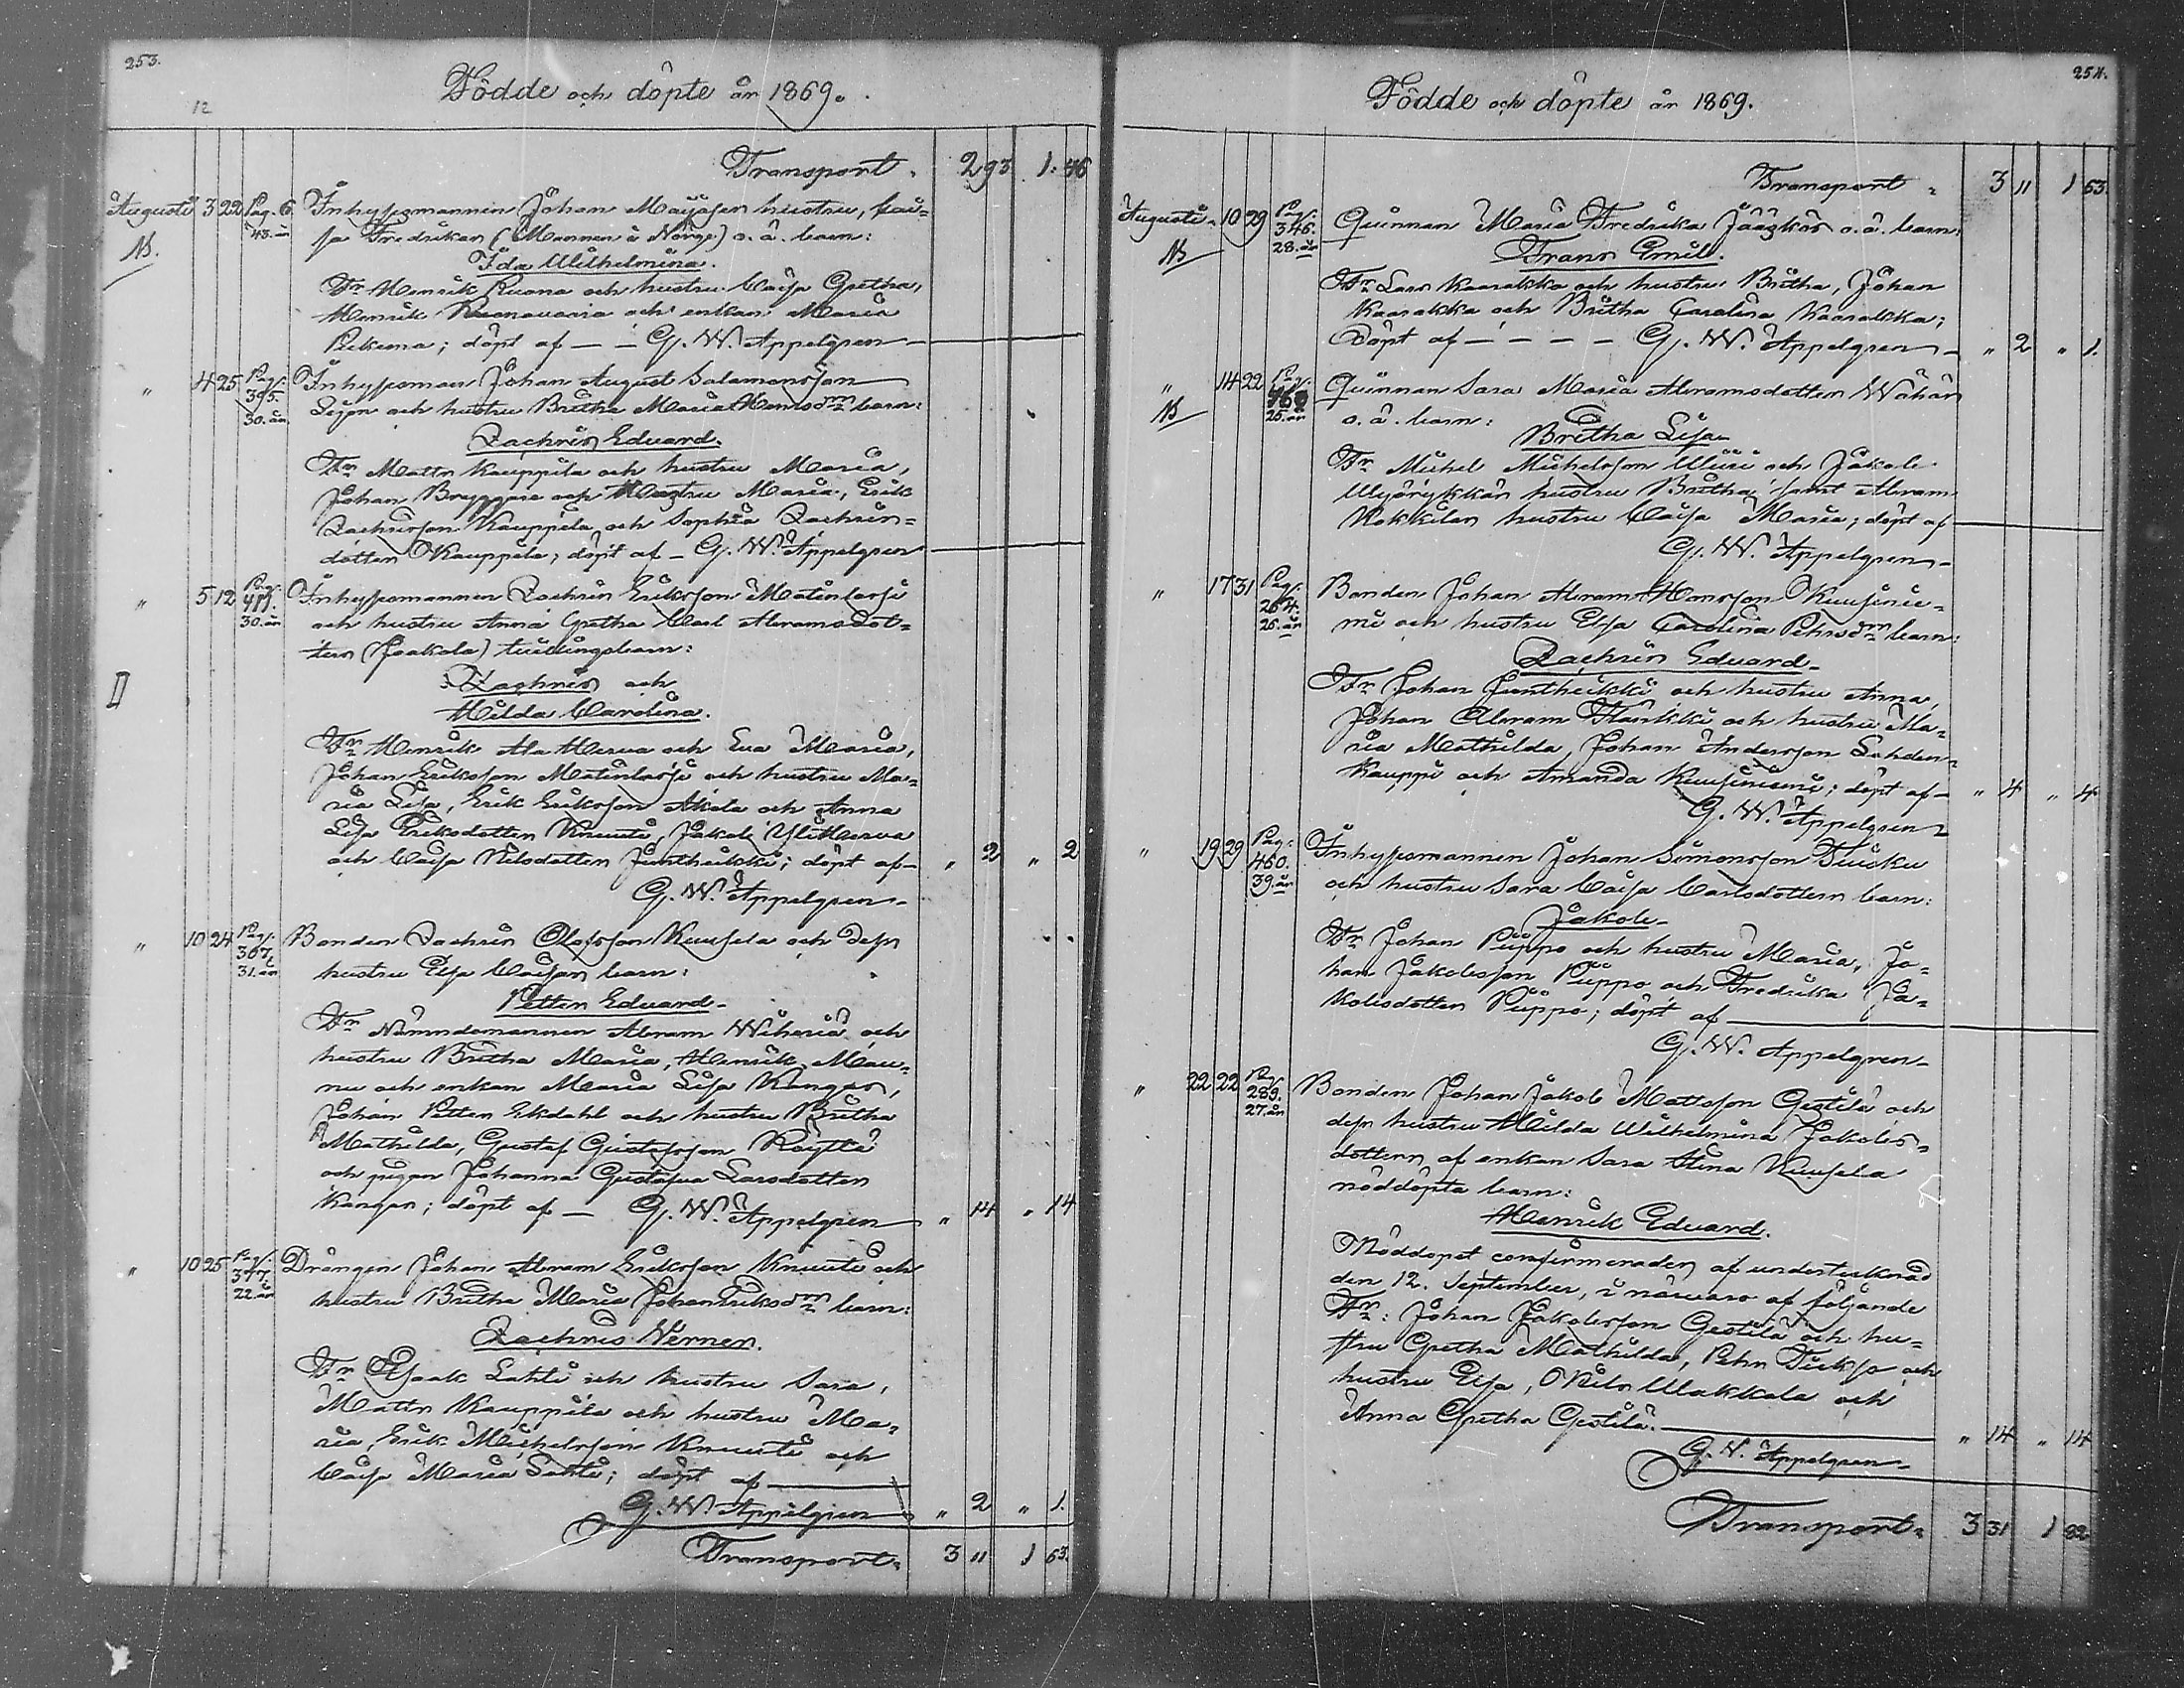 253.
12
Födde och döpte år 1869.
Transport. 2 93 1. 46
Augusti 3 22 Pag. 6. Inhysesmannen Johan hustru, Cai-
43. år
NB. sa Fredrikas (Mannen i Norge) o. ä. barn:
Ida Wilhelmina.
Fr Henrik Ruona och hustru Caisa Gretha,
Henrik och enkan Maria
; döpt af — — G. W. Appelgren —
" 4 25 Pag. 395. Inhysesman Johan August Salamonsson
30. år. och hustru Britha Maria barn:
Zachris Eduard.
Fr Matts Kauppila och hustru Maria,
Johan Bryggare och Hustru Maria, Erik
Zachrisson Kauppila och Sophia Zachris-
dotter Kauppila; döpt af — G. W. Appelgren
" 5 12 Pag. Inhysesmannen Zachris Eriksson Matinlassi
30. år och hustru Anna Gretha Carl Abramsdot-
ters (Jaakola) tvillingsbarn:
II Zachris och
Hilda Carolina.
Fr Henrik Ala Herva och Eva Maria,
Johan Eriksson Matinlassi och hustru Ma-
ria Lisa, Erik Eriksson Akola och Anna
Lisa Eriksdotter Knuuti, Jakob Yliherva
och Caisa Nilsdotter Juntheikki; döpt af — " 2 " 2
G. W. Appelgren —
" 10 24 Pag. 367. Bonden Zachris Olofsson Kuusela och dess
31. år hustru Elsa Caisas barn:
Petter Eduard —
Fr Nämndemannen Abram Wiheriä och
hustru Britha Maria, Henrik Mau-
nu och enkan Maria Lisa Kangas,
Johan Petter Ekdahl och hustru Britha
Mathilda, Gustaf Gustafsson Röyttä
och pigan Johanna Gustafva Larsdotter
Kangas; döpt af — G. W. Appelgren " 14 " 14
" 10 25 Pag. 377. Drängen Johan Abram Eriksson Knuuti och
22. år hustru Britha Maria Johan Eriksdrs barn:
Zachris Verner.
Fr Isaak Lahti och hustru Sara,
Matts Kauppila och hustru Ma-
ria, Erik Michelsson Knuuti och
Caisa Maria Lahti; döpt af —
G. W. Appelgren " 2 " 1.
Transport. 3 11 1 63.
254.
Födde och döpte år 1869.
Transport. 3 11 1 63.
Augusti. 10 29 Pag. 346. Qvinnan Maria Fredrika Jääskös o. ä. barn:
NB 28. år Frans Emil.
Fr Lars Kaarakka och hustru Britha, Johan
Kaarakka och Britha Carolina Kaarakka;
Döpt af — — — — G. W. Appelgren — " 2 " 1.
" 14 22 Pag. Qvinnan Sara Maria Abramsdotter Wähäs
NB 25. år o. ä. barn:
Britha Lisa —
Fr Michel Michelsson och Jakob
hustru Britha samt Abram
hustru Caisa Maria; döpt af —
G. W. Appelgren —
" 17 31 Pag. 264. Bonden Johan Abram Hansson Kuusinie-
26. år mi och hustru Elsa Carolina Pehrsdrs barn:
Zachris Eduard —
Fr Johan Juntheikki och hustru Anna,
Johan Abram och hustru Ma-
ria Mathilda, Johan Andersson Lahden-
kauppi och Amanda Kuusiniemi; döpt af — " 4 " 4
G. W. Appelgren
" 19 29 Pag. 460. Inhysesmannen Johan Simonsson Tuisku
39. år och hustru Sara Caisa Carlsdotters barn:
Jakob —
Fr Johan Piippo och hustru Maria, Jo-
han Jakobsson Piippo och Fredrika Ja-
kobsdotter Piippo; döpt af —
G. W. Appelgren —
" 22 22 Pag. 289. Bonden Johan Jakob Mattsson Gestilä och
27. år dess hustru Hilda Wilhelmina Jakobs-
dotters af enkan Sara Stina Kuusela
nöddöpta barn:
Henrik Eduard.
Nöddopet confirmerades af undertecknad
den 12. September, i närvaro af följande
Fr: Johan Jakobsson Gestilä och hu-
stru Gretha Mathilda, Pehr och
hustru Elsa, Nils Ulakkala och
Anna Gretha Gestilä. — " 14 " 14
G. W. Appelgren —
Transport. 3 31 1 82